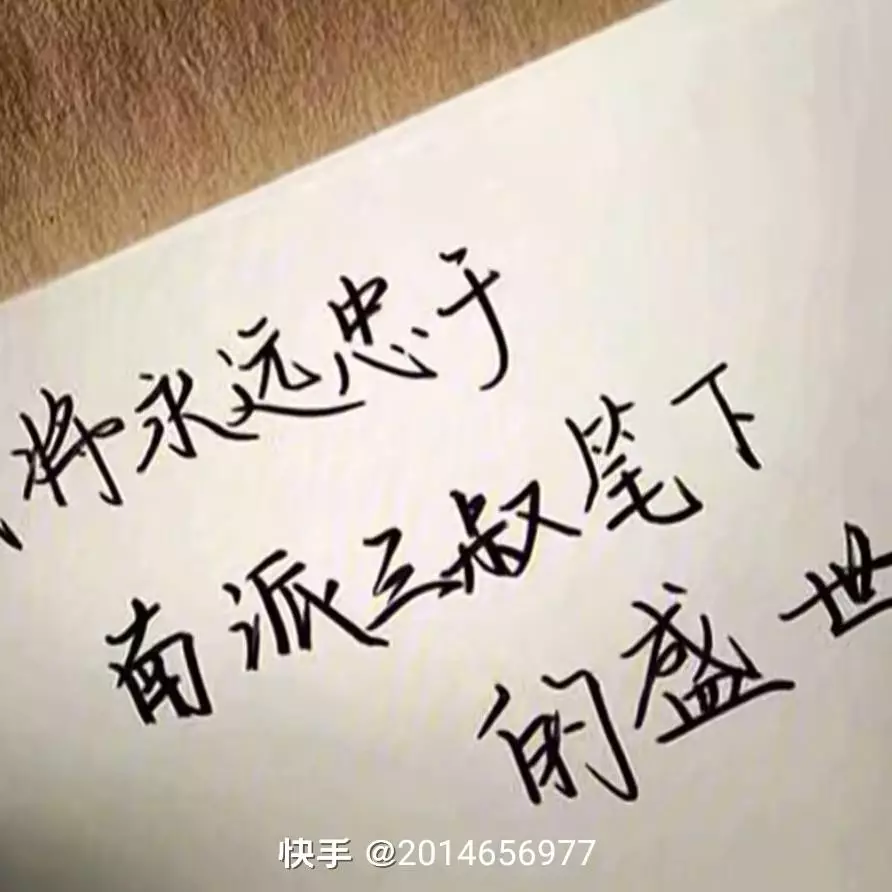 将永远忠于
南派三叔笔下
的盛世
快手 @2014656977